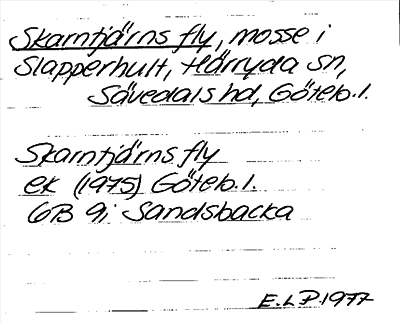 Skarntjärns fly, mosse i
Slapperhult, Härryda sn,
Sävedals hd, Göteb. l.
Skarntjärns fly
ek (1975) Göteb. l.
6B 9i Sandsbacka
E. L P. 1977